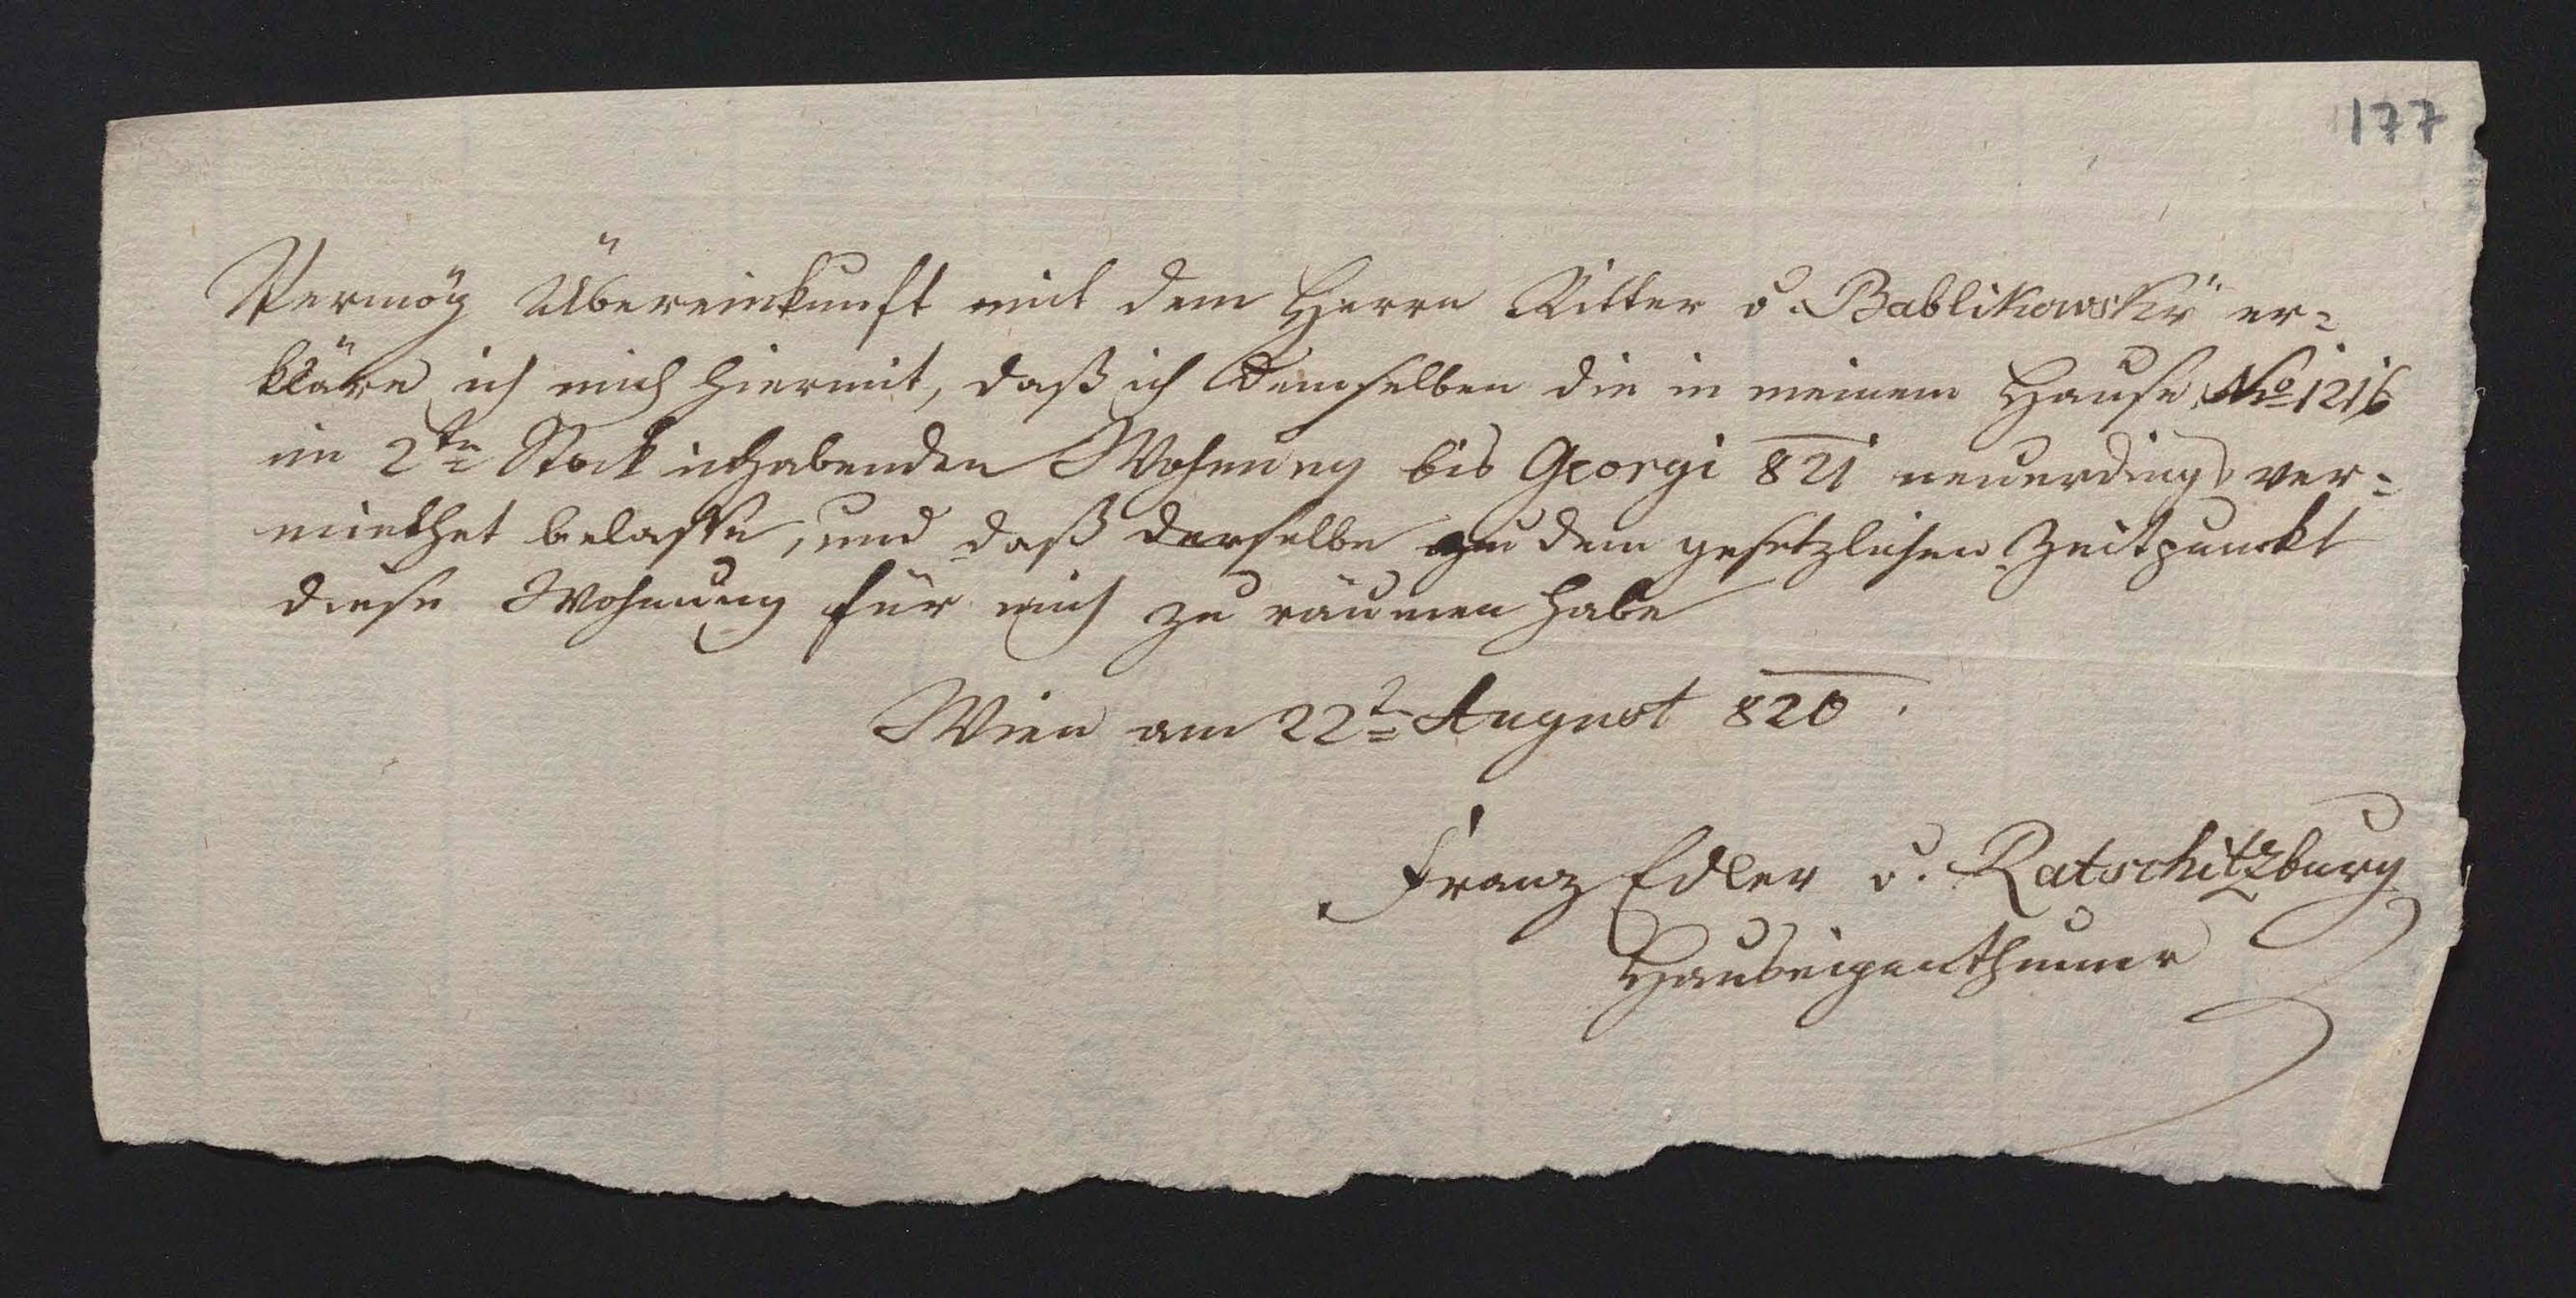 177
Vermög Übereinkunft mit dem Herrn Ritter v. Bablikowsky er=
kläre ich mich hiermit, daß ich demselben die in meinem Hause No 1216
im 2ten Stock inhabenden Wohnung bis Georgi 821 neuerdings ver=
miethet belasse, und daß derselbe zu dem gesetzlichen Zeitpunkt
diese Wohnung für mich zu räumen habe
Wien am 22t August 820.
Franz Edler v. Ratschitzburg
Hauseigenthümer